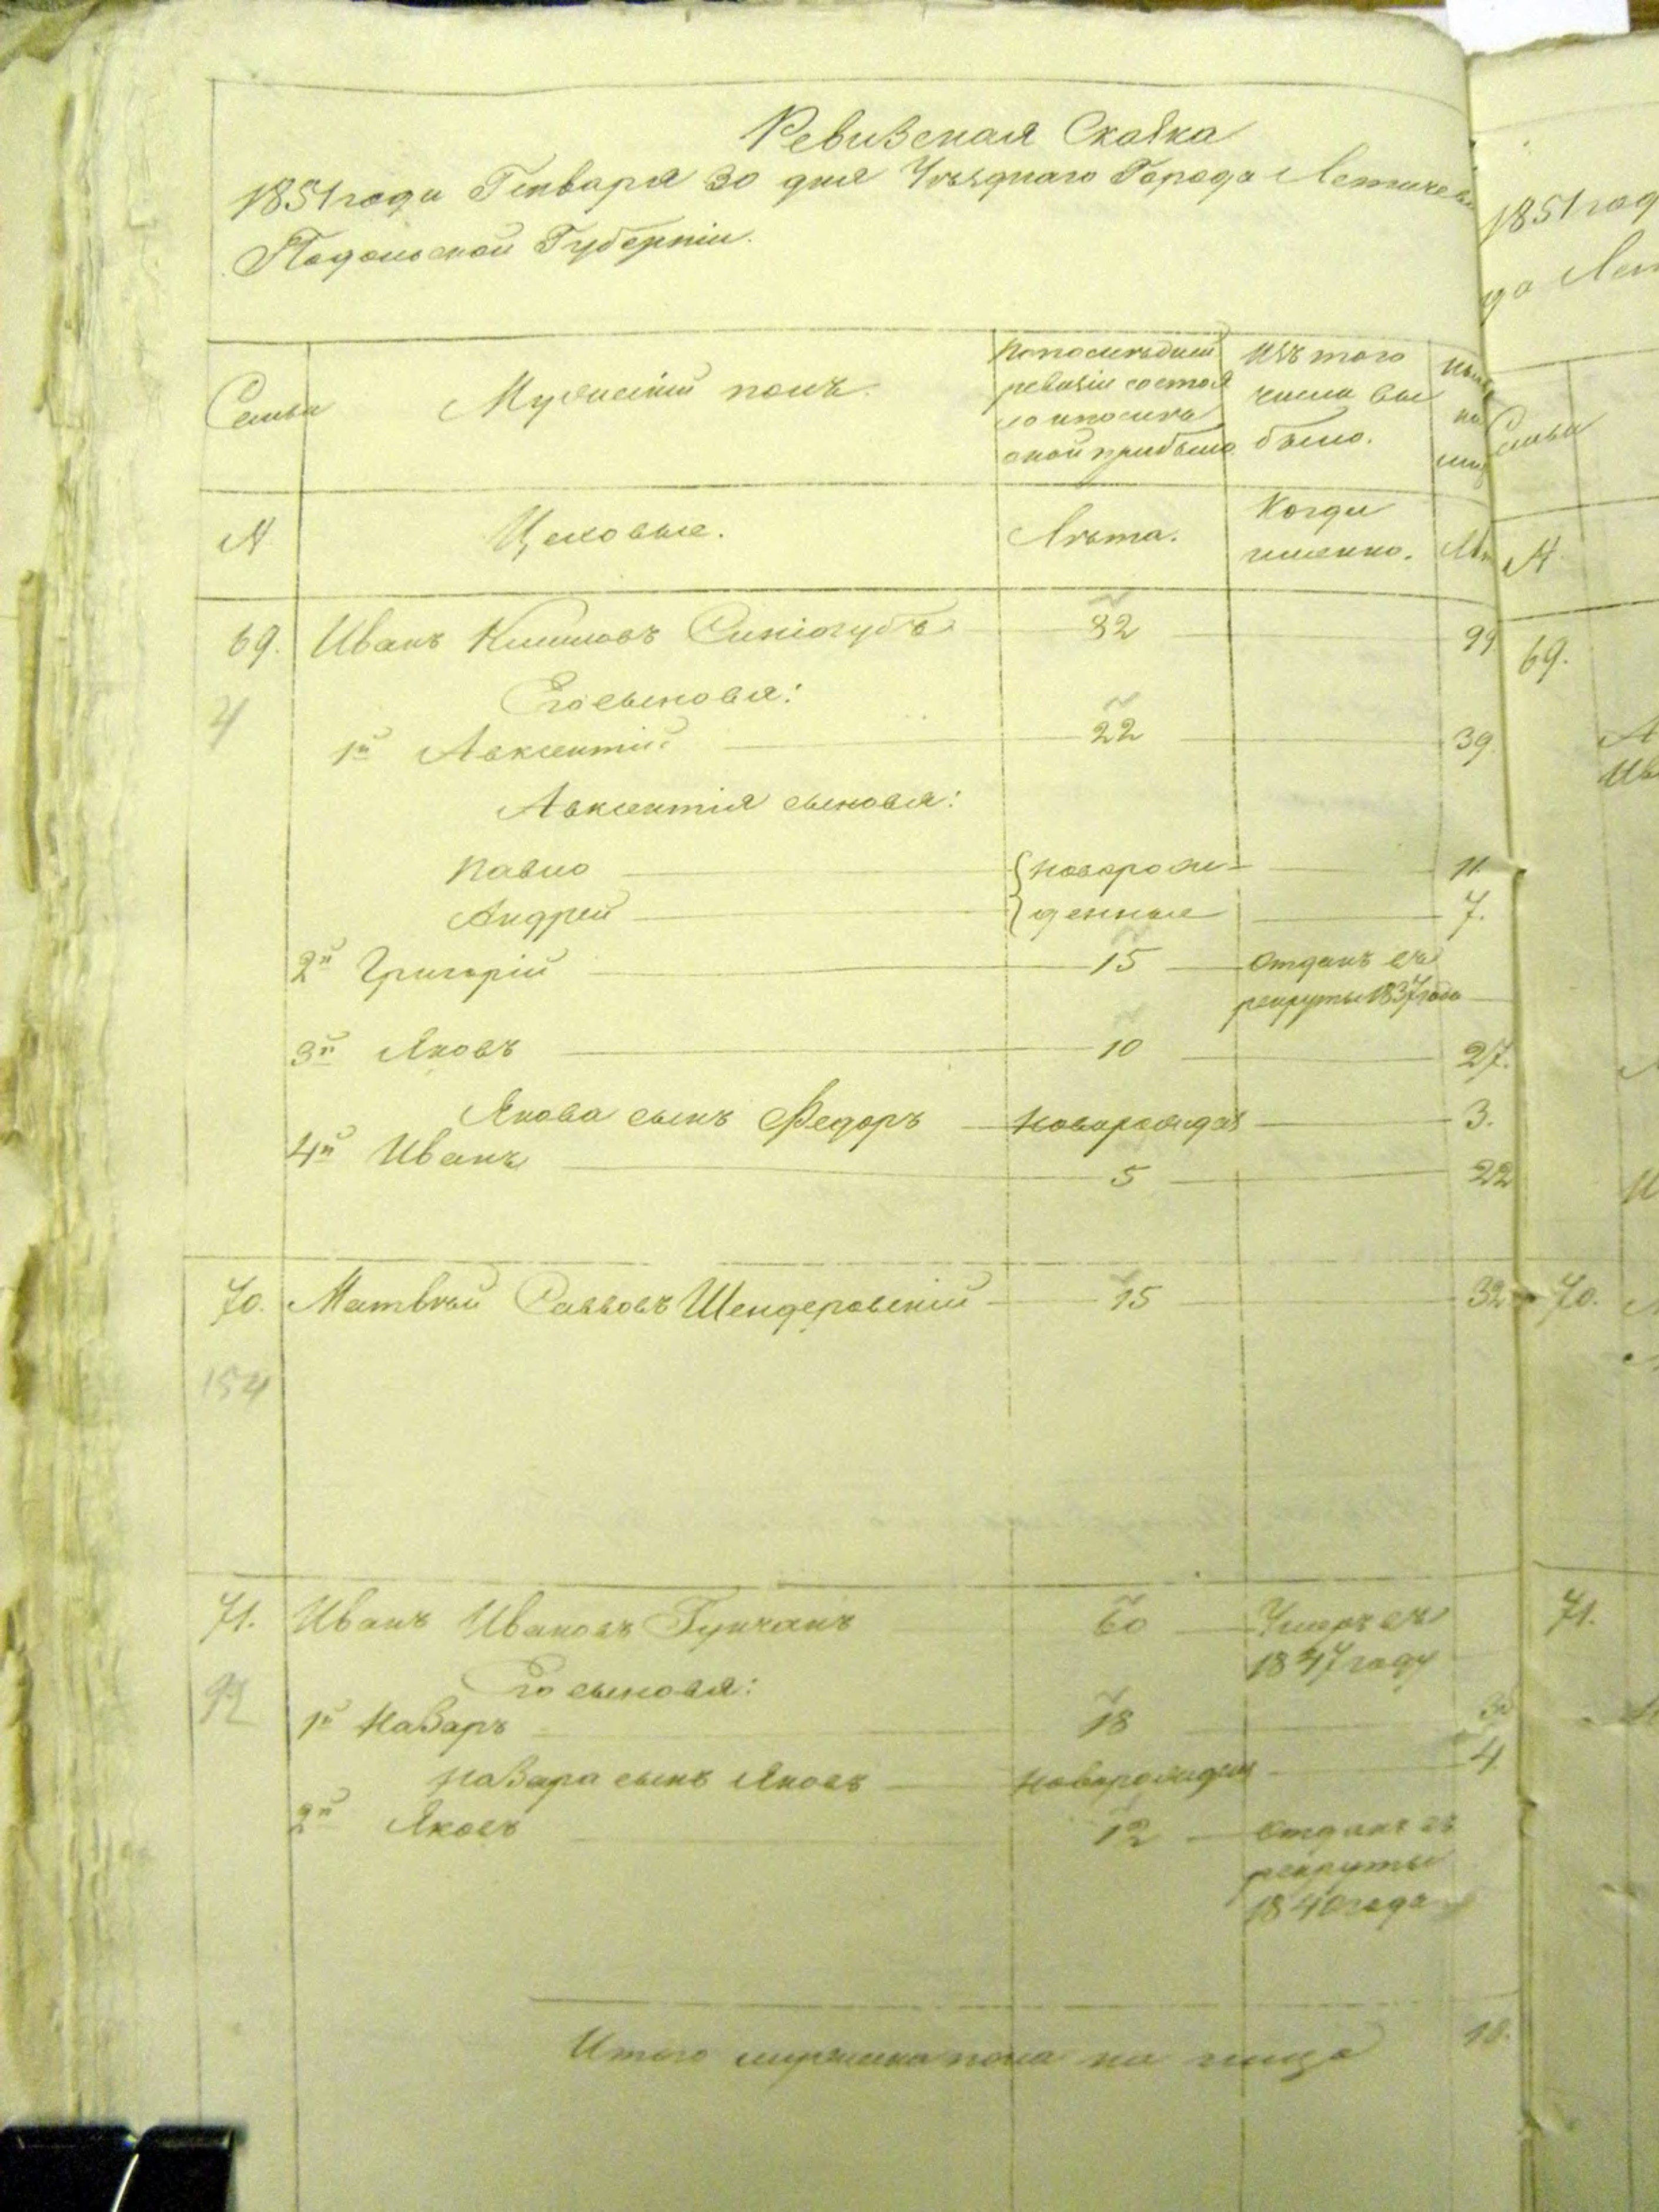 Ревизская Сказка
1851 года Генваря 30 дня Уѣзднаго Города Летичева
Подольской Губерніи.
Семьи
Мужескій полъ.
По послѣдней
ревизіи состоя
ло и послѣ
оной прибыло
Изъ того
числа вы
было.
Нынѣ
на
лиц
№
Цеховые.
Лѣта.
Когда
именно.
Лѣт
69. Иванъ Климовъ Синіогубъ 82 99
4
Его сыновья:
1й Авксентій 22 39.
Авксентія сыновья:
Павло { новорож- 11.
Андрей } денные 7.
2й Григорій 15 отданъ въ
рекруты 1837 года
3й Яковъ 10 27.
Якова сынъ Федоръ новорожден 3.
4й Иванъ 5 22
70. Матвѣй Саввовъ Шендеровскій 15 32
154
71. Иванъ Ивановъ 60 Умеръ въ
1847 году
92
Его сыновья:
1й Назаръ 18
Назара сынъ Яковъ новорожден 4
2й Яковъ 12 отданъ въ
рекруты
1840 года
Итого мужеска пола на лицо 10.
1851 год
да Лет
Семьи
№
69.
А
Ив
И
70.
71.